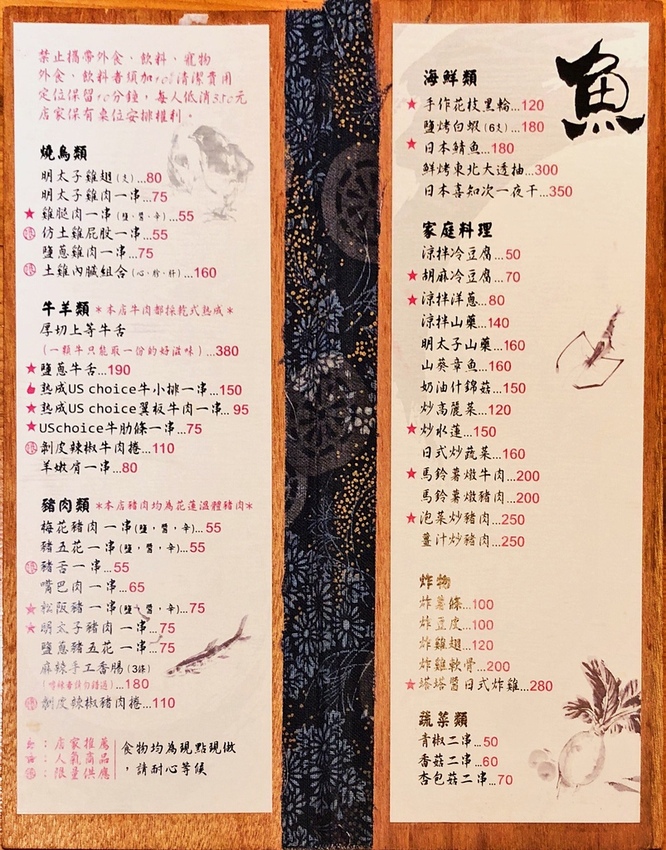 禁止攜帶外食、飲料、寵物
外食、飲料者須加10%清潔費用
定位保留10分鐘，每人低消350元
店家保有桌位安排權利。
燒鳥類
明太子雞翅(支)...80
明太子雞肉一串...75
★雞腿肉一串(鹽、醬、辛)...55
仿土雞屁股一串...55
鹽蔥雞肉一串...75
土雞內臟組合(心、胗、肝)...160
牛羊類 *本店牛肉都採乾式熟成*
厚切上等牛舌
(一顆牛只能取一份的好滋味)...380
★鹽蔥牛舌...190
熟成US choice牛小排一串...150
★熟成US choice翼板牛肉一串... 95
★USchoice牛肋條一串...75
剝皮辣椒牛肉捲...110
羊嫩肩一串...80
豬肉類 *本店豬肉均為花蓮溫體豬肉*
梅花豬肉一串(鹽、醬、辛)...55
豬五花一串(鹽、醬、辛)...55
豬舌一串...55
嘴巴肉一串...65
★松阪豬一串(鹽、醬、辛)...75
★明太子豬肉一串...75
鹽蔥豬五花一串...75
麻辣手工香腸(3條)
...180
剝皮辣椒豬肉捲...110
：店家推薦
★：人氣商品
：限量供應
食物均為現點現做
，請耐心等候
魚
海鮮類
★手作花枝黑輪...120
鹽烤白蝦(6支)...180
★日本鯖魚...180
鮮烤東北大透抽...300
日本喜知次一夜干...350
家庭料理
涼拌冷豆腐...50
★胡麻冷豆腐...70
★涼拌洋蔥...80
涼拌山藥...140
明太子山藥...160
山葵章魚...160
奶油什錦菇...150
炒高麗菜...120
★炒水蓮...150
日式炒蔬菜...160
★馬鈴薯燉牛肉...200
馬鈴薯燉豬肉...200
★泡菜炒豬肉...250
薑汁炒豬肉...250
炸物
炸薯條...100
炸豆皮...100
炸雞翅...120
炸雞軟骨...200
★塔塔醬日式炸雞...280
蔬菜類
青椒二串...50
香菇二串...60
杏包菇二串...70